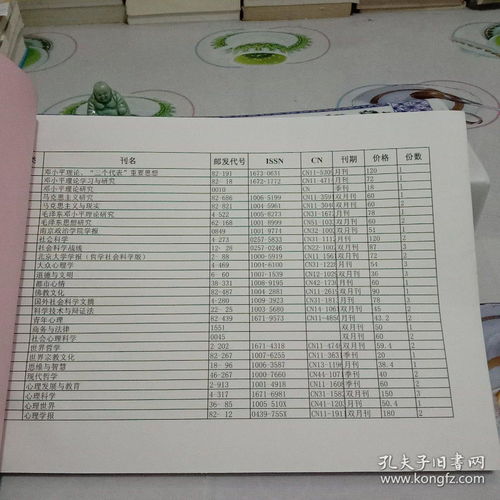 类 刊名 邮发代号 ISSN CN 刊期 价格 份数
邓小平理论、“三个代表”重要思想 82-191 1673-0631 CN11-5309 月刊 120 1
邓小平理论学习与研究 82- 18 1672-1772 CN11-4714 月刊 72 1
邓小平理论研究 0010 CN 季刊 18 1
马克思主义研究 82-686 1006-5199 CN11-3591 双月刊 60 1
马克思主义与现实 82-821 1004-5961 CN11-3040 双月刊 60 2
毛泽东邓小平理论研究 4-522 1005-8273 CN31-1672 月刊 78 1
毛泽东思想研究 62-168 1001-8999 CN51-1033 双月刊 60 2
南京政治学院学报 0849 1001-9774 CN32-1002 双月刊 51 1
社会科学 4-273 0257-5833 CN31-1112 月刊 120 2
社会科学战线 12- 28 0257-0246 CN22-1002 双月刊 87 3
北京大学学报（哲学社会科学版） 2- 88 1000-5919 CN11-1561 双月刊 72 2
大众心理学 4-469 1004-6100 CN31-1228 月刊 54 3
道德与文明 6- 60 1007-1539 CN12-1029 双月刊 36 3
都市心情 38-331 1008-9195 CN42-1736 月刊 60 1
佛教文化 82-487 1004-2881 CN11-2619 双月刊 90 1
国外社会科学文摘 4-280 1009-3923 CN31-181 月刊 78 3
科学技术与辩证法 22- 25 1003-5680 CN14-1065 双月刊 45 2
青年心理 82-439 1671-9573 CN11-4855 月刊 43.2 2
商务与法律 1551 双月刊 50 1
社会心理科学 0045 双月刊 60 2
世界哲学 2-202 1671-4318 CN11-4748 双月刊 59.4 2
世界宗教文化 2-267 1007-6255 CN11-3631 季刊 20 1
思维与智慧 18- 96 1006-3587 CN13-1196 月刊 38.4 1
现代哲学 46-267 1000-7660 CN44-1071 季刊 40 1
心理发展与教育 2-913 1001-4918 CN11-1608 季刊 60 2
心理科学 4-317 1671-6981 CN31-1582 双月刊 150 3
心理世界 36- 85 1005-510X CN41-1203 月刊 50.4 1
心理学报 82- 12 0439-755X CN11-1911 双月刊 180 2
孔夫子旧书网
www.kongfz.com